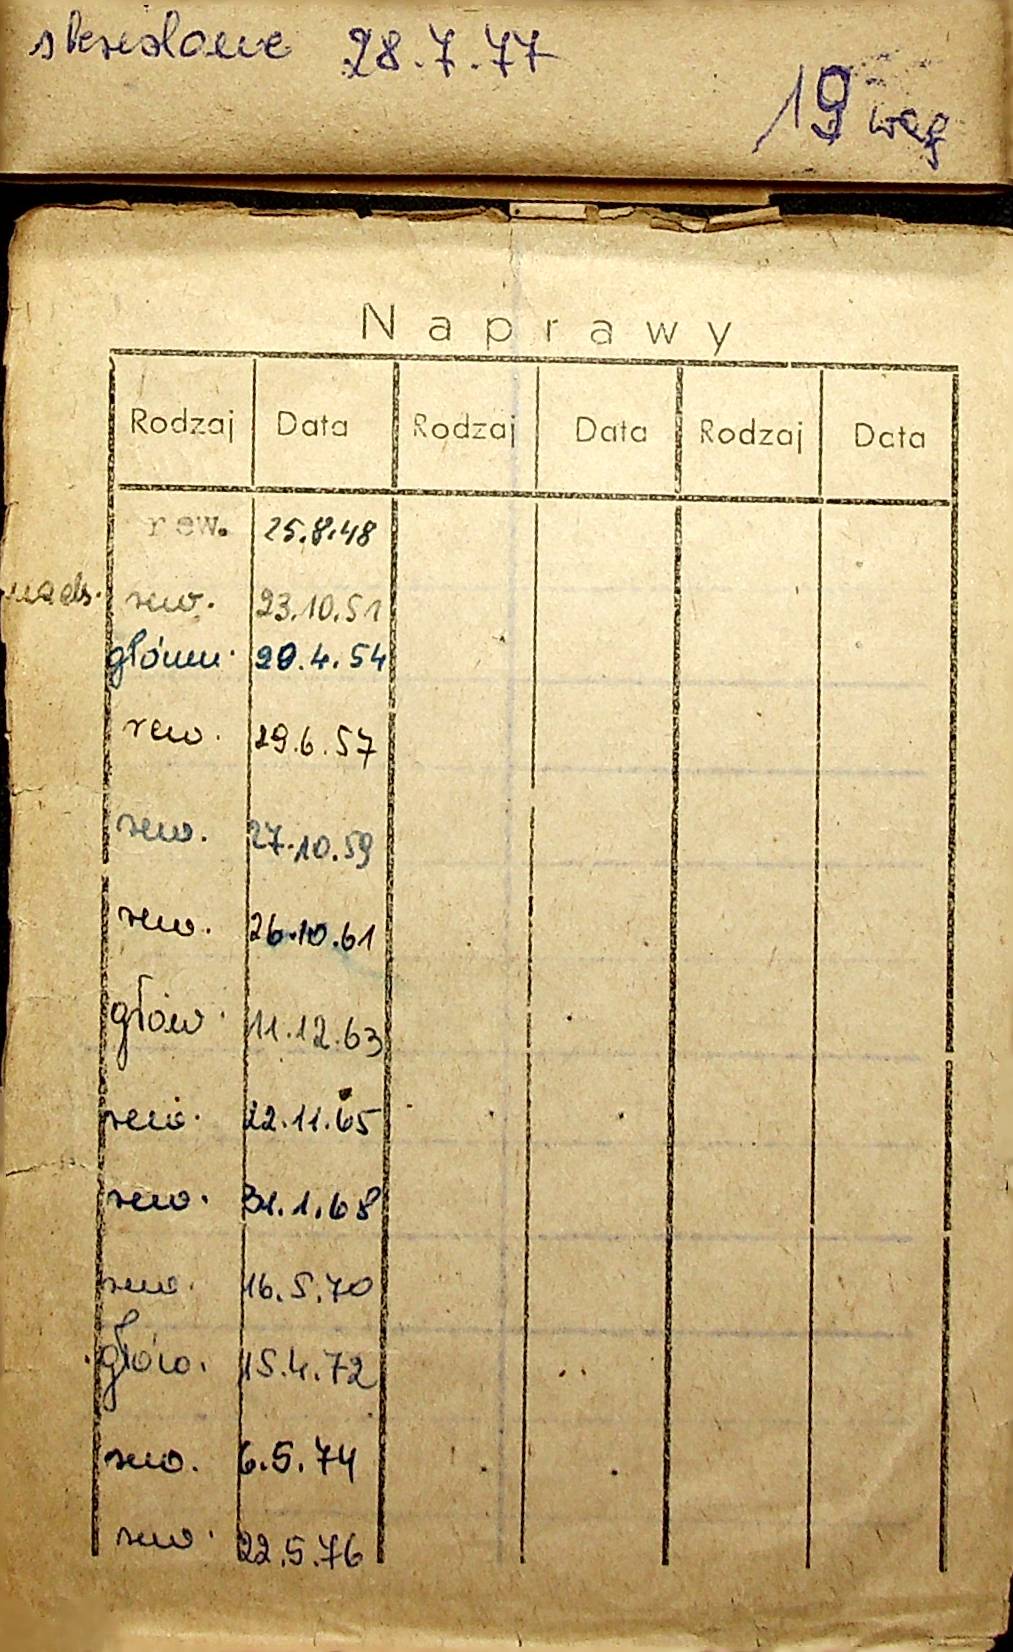 skreślone 28.7.77
19 wag
Naprawy
Rodzaj Data Rodzaj Data Rodzaj Data
rew. 25.8.48
nads. rew. 23.10.51
główn. 20.4.54
rew. 29.6.57
rew. 27.10.59
rew. 26.10.61
głów. 11.12.63
rew. 22.11.65
rew. 31.1.68
rew. 16.5.70
głów. 15.4.72
rew. 6.5.74
rew. 22.5.76